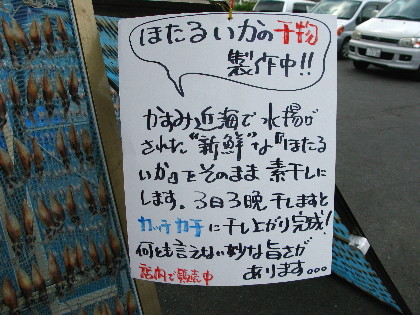 ほたるいかの干物
製作中!!
かすみ近海で水揚げ
された"新鮮"な『ほたる
いか』をそのまま素干しに
します。3日3晩干しますと
カッチカチに干し上がり完成!
何とも言えない妙な旨さが
あります。。。
店内で販売中